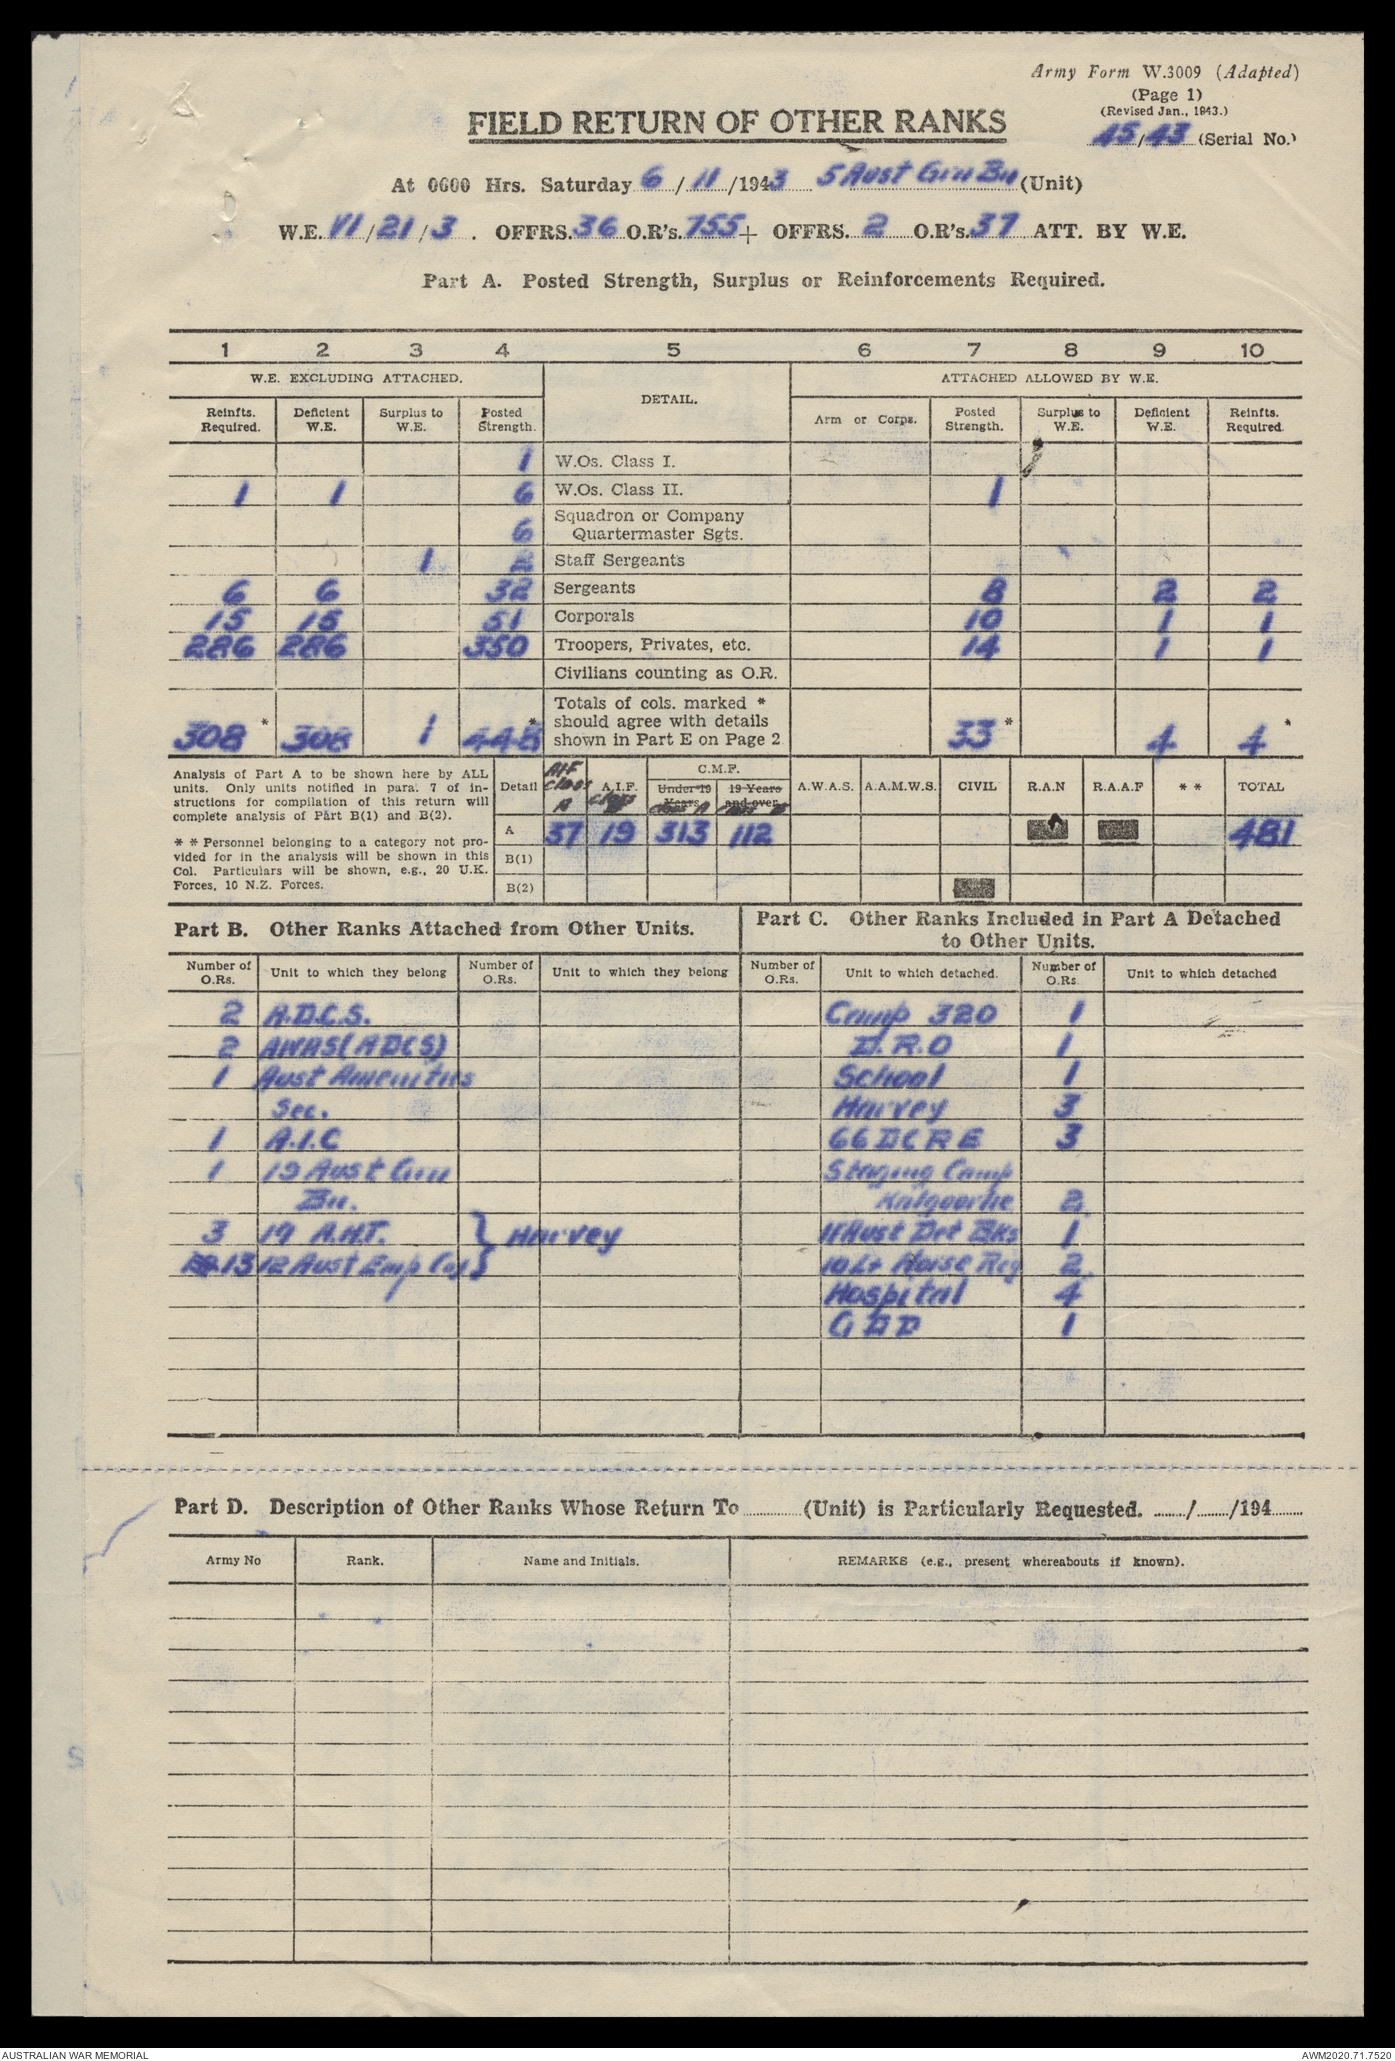 Army Form W.3009 (Adapted)
(Page 1)
(Revised Jan., 1943.)
FIELD RETURN OF OTHER RANKS
45/43 (Serial No.)
At 0600 Hrs. Saturday 6/11/1943 5 Aust Grn Bn (Unit)
W.E. VI/21/3. OFFRS. 36 O.R's. 755 + OFFRS. 2 O.R's. 37 ATT. BY W.E.
Part A. Posted Strength, Surplus or Reinforcements Required.
1 2 3 4 5 6 7 8 9 10
W.E. EXCLUDING ATTACHED. DETAIL. ATTACHED ALLOWED BY W.E.
Reinfts. Required. Deficient W.E. Surplus to W.E. Posted Strength. Arm or Corps. Posted Strength. Surplus to W.E. Deficient W.E. Reinfts. Required.
1 W.Os. Class I.
1 1 6 W.Os. Class II. 1
Squadron or Company
6 Quartermaster Sgts.
1 2 Staff Sergeants
6 6 32 Sergeants 8 2 2
15 15 51 Corporals 10 1 1
286 286 350 Troopers, Privates, etc. 14 1 1
Civilians counting as O.R.
Totals of cols. marked *
* * should agree with details * *
308 308 1 448 shown in Part E on Page 2 33 4 4
Analysis of Part A to be shown here by ALL
units. Only units notified in para. 7 of in-
structions for compilation of this return will
complete analysis of Part B(1) and B(2).
* * Personnel belonging to a category not pro-
vided for in the analysis will be shown in this
Col. Particulars will be shown, e.g., 20 U.K.
Forces, 10 N.Z. Forces.
Detail AIF Class A A.I.F. Class B C.M.F. Under 19 Years Class A 19 Years and over Class B A.W.A.S. A.A.M.W.S. CIVIL R.A.N R.A.A.F * * TOTAL
A 37 19 313 112 481
B(1)
B(2)
Part B. Other Ranks Attached from Other Units.
Part C. Other Ranks Included in Part A Detached
to Other Units.
Number of O.Rs. Unit to which they belong Number of O.Rs. Unit to which they belong Number of O.Rs. Unit to which detached. Number of O.Rs. Unit to which detached
2 A.D.C.S. Camp 320 1
2 AWAS (ADCS) D.R.O 1
1 Aust Amenities School 1
Sec. Harvey 3
1 A.I.C 66 DCRE 3
1 19 Aust Grn Staging Camp
Bn. Kalgoorlie 2
3 19 A.H.T. } Harvey 11 Aust Det Bks 1
13 12 Aust Emp Coy 10 Lt Horse Reg 2
Hospital 4
GDD 1
Part D. Description of Other Ranks Whose Return To ........ (Unit) is Particularly Requested. ....../....../194......
Army No Rank. Name and Initials. REMARKS (e.g., present whereabouts if known).
AUSTRALIAN WAR MEMORIAL AWM2020.71.7520